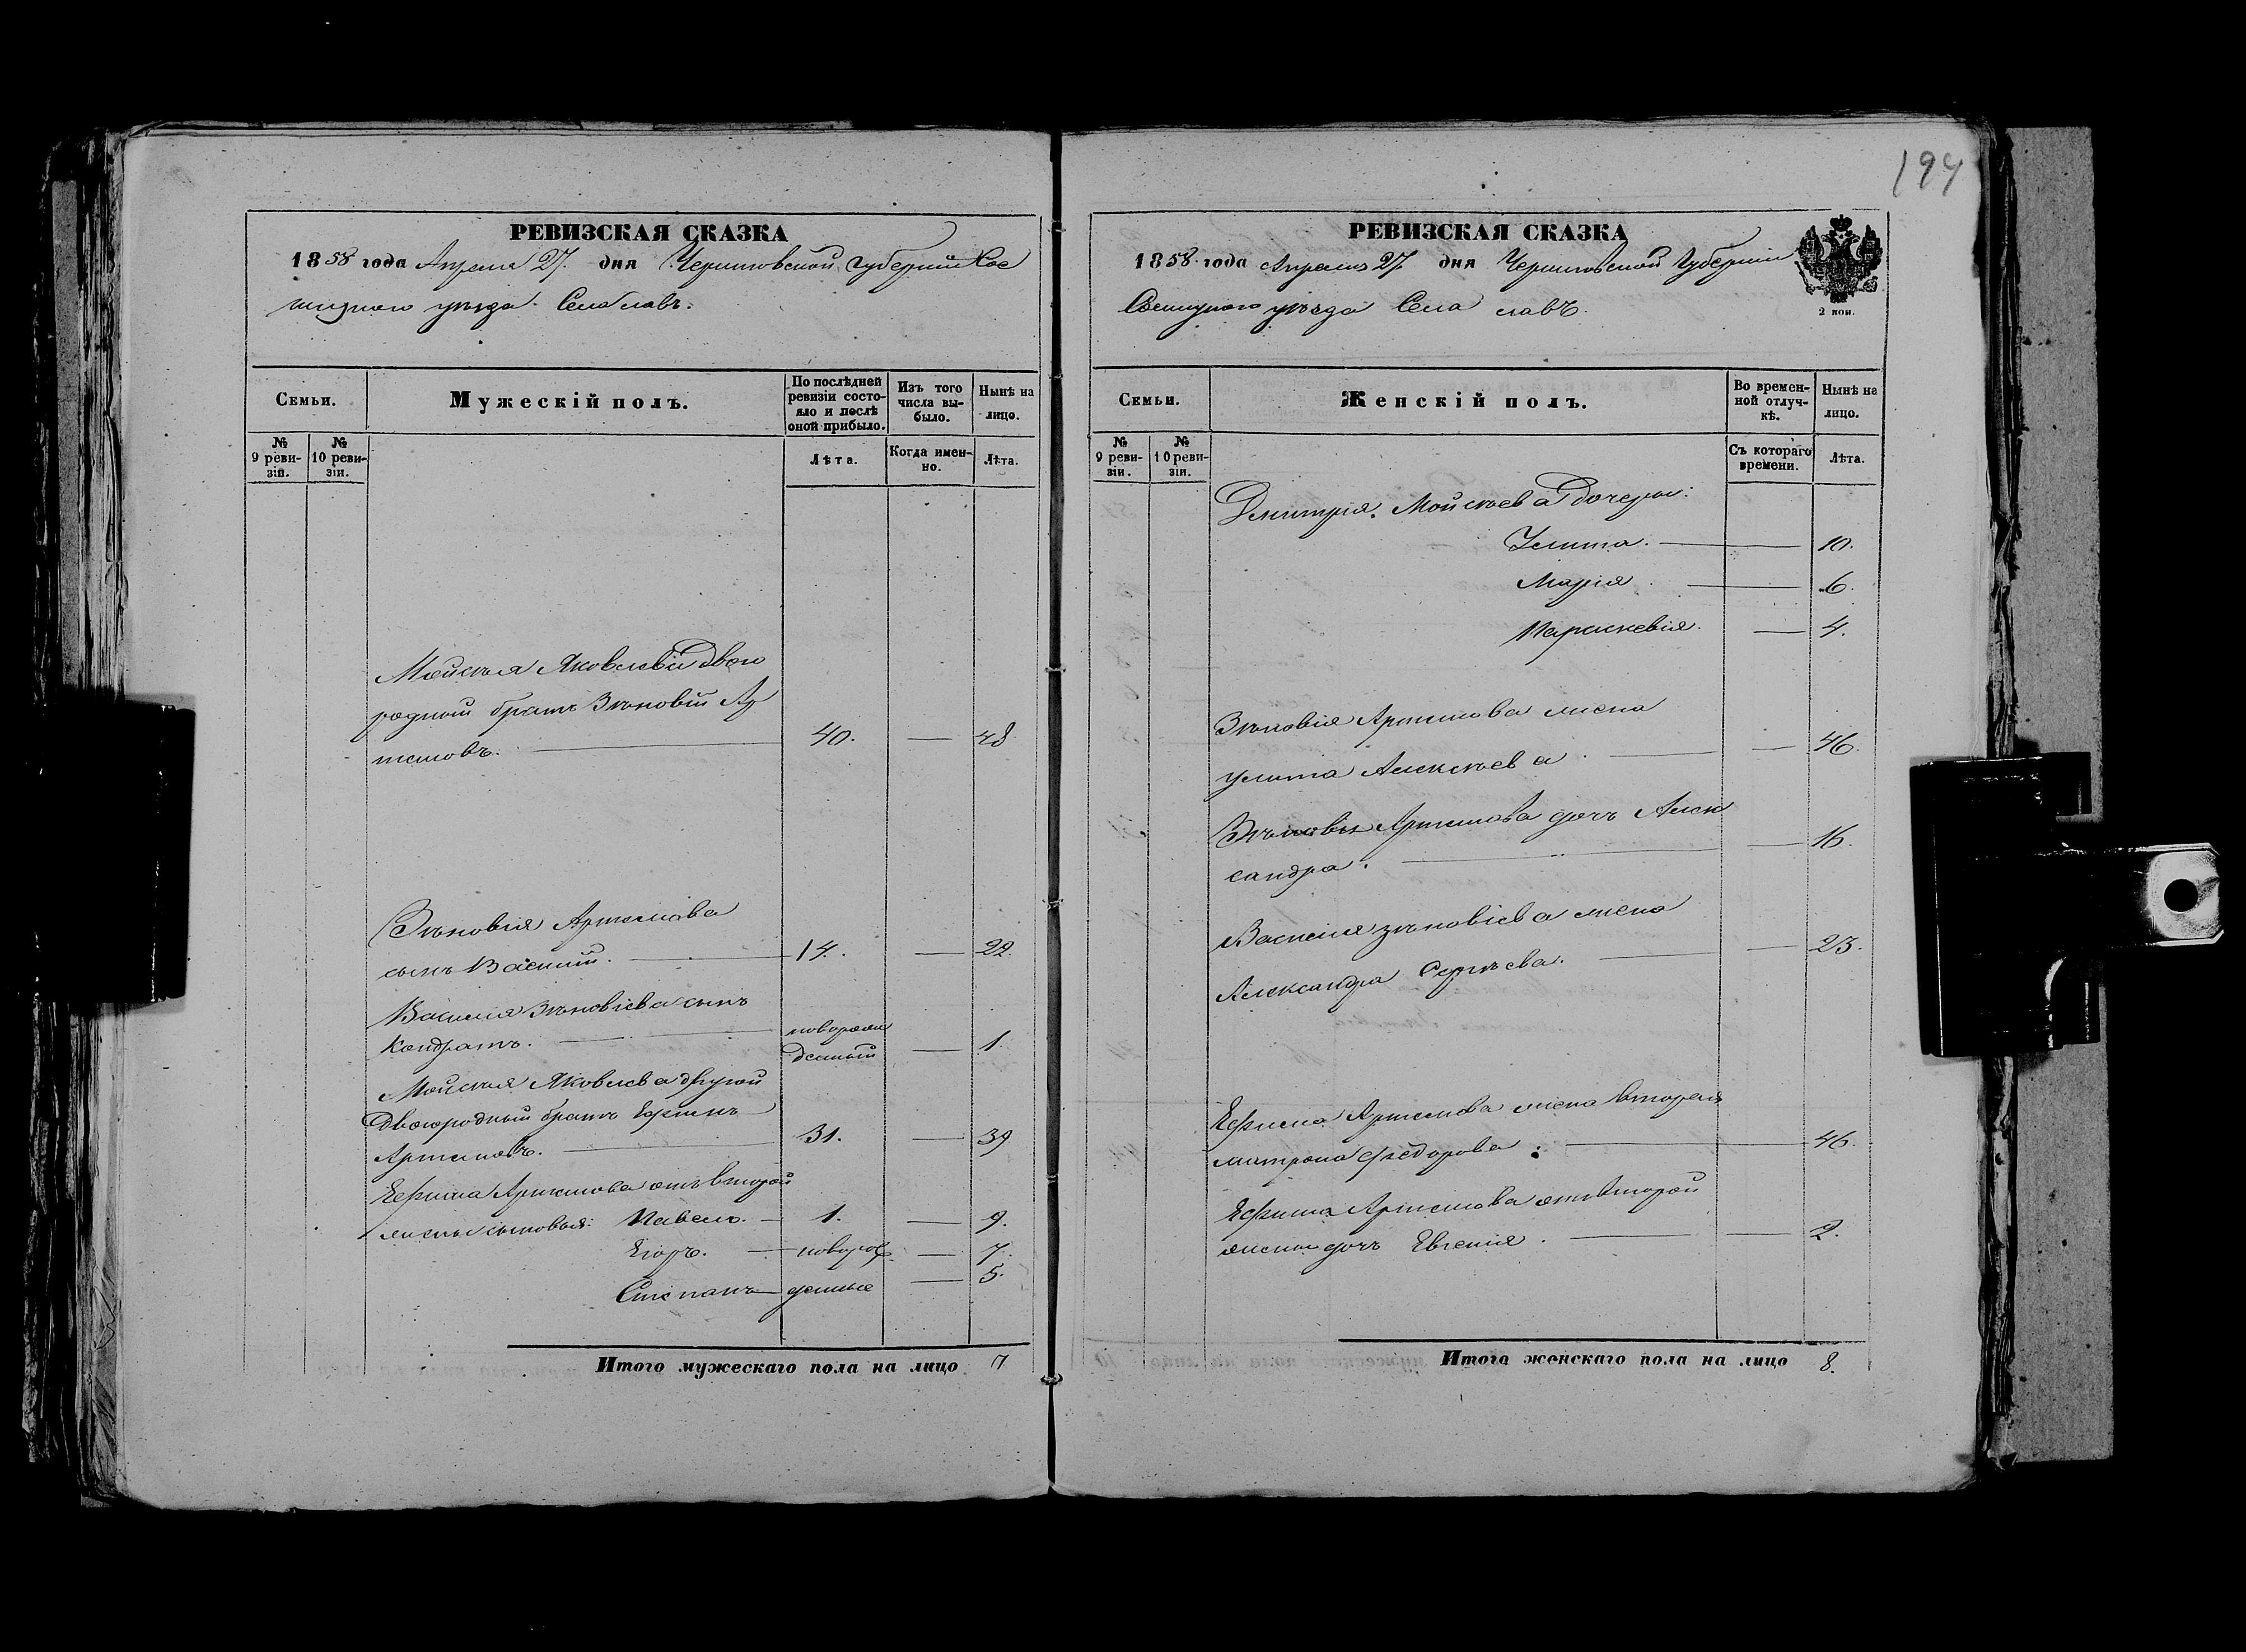 194
РЕВИЗСКАЯ СКАЗКА
1858 года Апреля 27. дня Черниговской губернии Сос
ницкаго уѣзда. Села Савъ.
Семьи.
Мужескій полъ.
По послѣдней ревизіи состояло и послѣ оной прибыло.
Изъ того числа выбыло.
Нынѣ на лицо.
№ 9 ревизіи.
№ 10 ревизіи.
Лѣта.
Когда именно.
Лѣта.
Мойсѣя Яковлева Двою
родный братъ Зѣновій Ар
темовъ. 40. — 48
Зѣновія Артемова
сынъ Василій. 14. — 22.
Василія Зѣновіева сынъ
Кондратъ. новорож
денный — 1.
Мойсѣя Яковлева другой
Двоюродный братъ Ефимъ
Артемовъ. 31. — 39
Ефима Артемова отъ второй
жены сыновья: Павелъ. — 1. — 9.
Егоръ. — новорож — 7.
Степанъ — денные — 5.
Итого мужескаго пола на лицо 7
РЕВИЗСКАЯ СКАЗКА
1858 года Апреля 27. дня Черниговской Губерніи
Сосницкаго уѣзда Села Савъ.
2 коп.
Семьи.
Женскій полъ.
Во временной отлучкѣ.
Нынѣ на лицо.
№ 9 ревизіи.
№ 10 ревизіи.
Съ котораго времени.
Лѣта.
Дмитрія Мойсѣева Дочеры:
Улита. — 10.
Марія — 6.
Параскевія. — 4.
Зѣновія Артемова жена
улита Алексѣева — 46.
Зѣновія Артемова дочь Алек
сандра. — 16.
Василія зѣновіева жена
Александра Сергѣева. — 23.
Ефима Артемова жена вторая
матрона Федорова. — 46.
Ефима Артемова отъ второй
жены дочь Евгенія. — 2.
Итого женскаго пола на лицо 8.